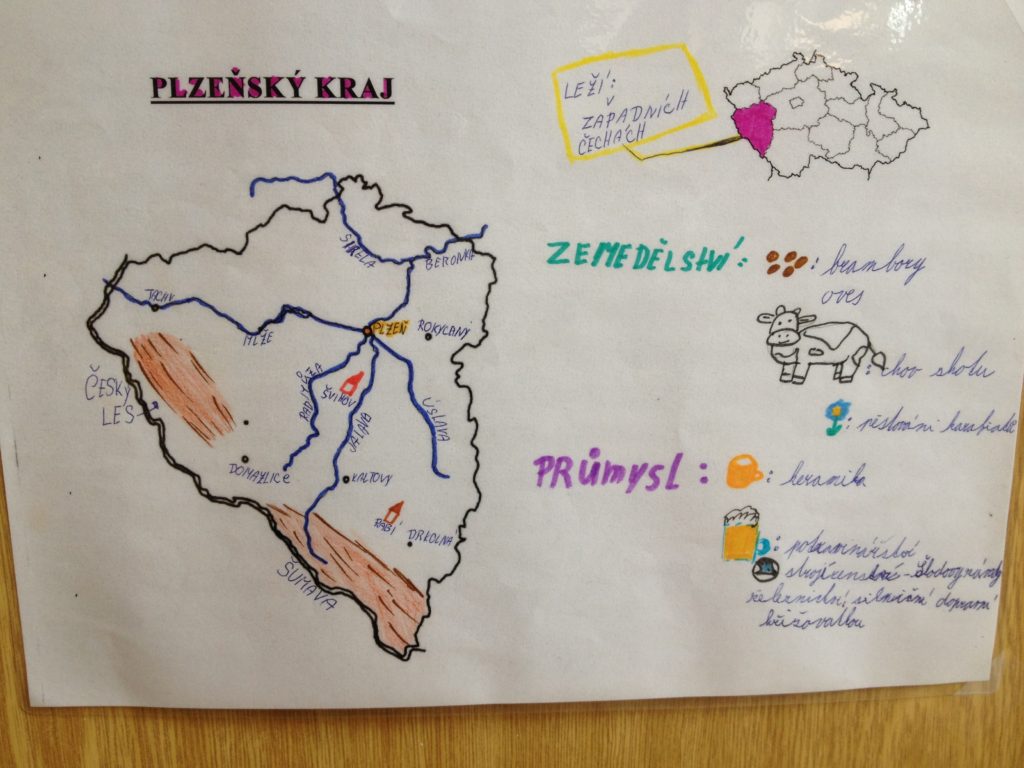 PLZEŇSKÝ KRAJ
LEŽÍ:
V
ZÁPADNÍCH
ČECHÁCH
STŘELA
BEROUNKA
TACHOV
MŽE
PLZEŇ
ROKYCANY
ČESKÝ
LES
RADBUZA
ŠVIHOV
ÚHLAVA
ÚSLAVA
DOMAŽLICE
KLATOVY
RABÍ
ŠUMAVA
ZEMEDĚLSTVÍ:
: brambory
oves
: chov skotu
: pěstování
PRŮMYSL:
: keramika
: potravinářství
strojírenství - Škodovy závody
železniční, silniční dopravní
křižovatkou